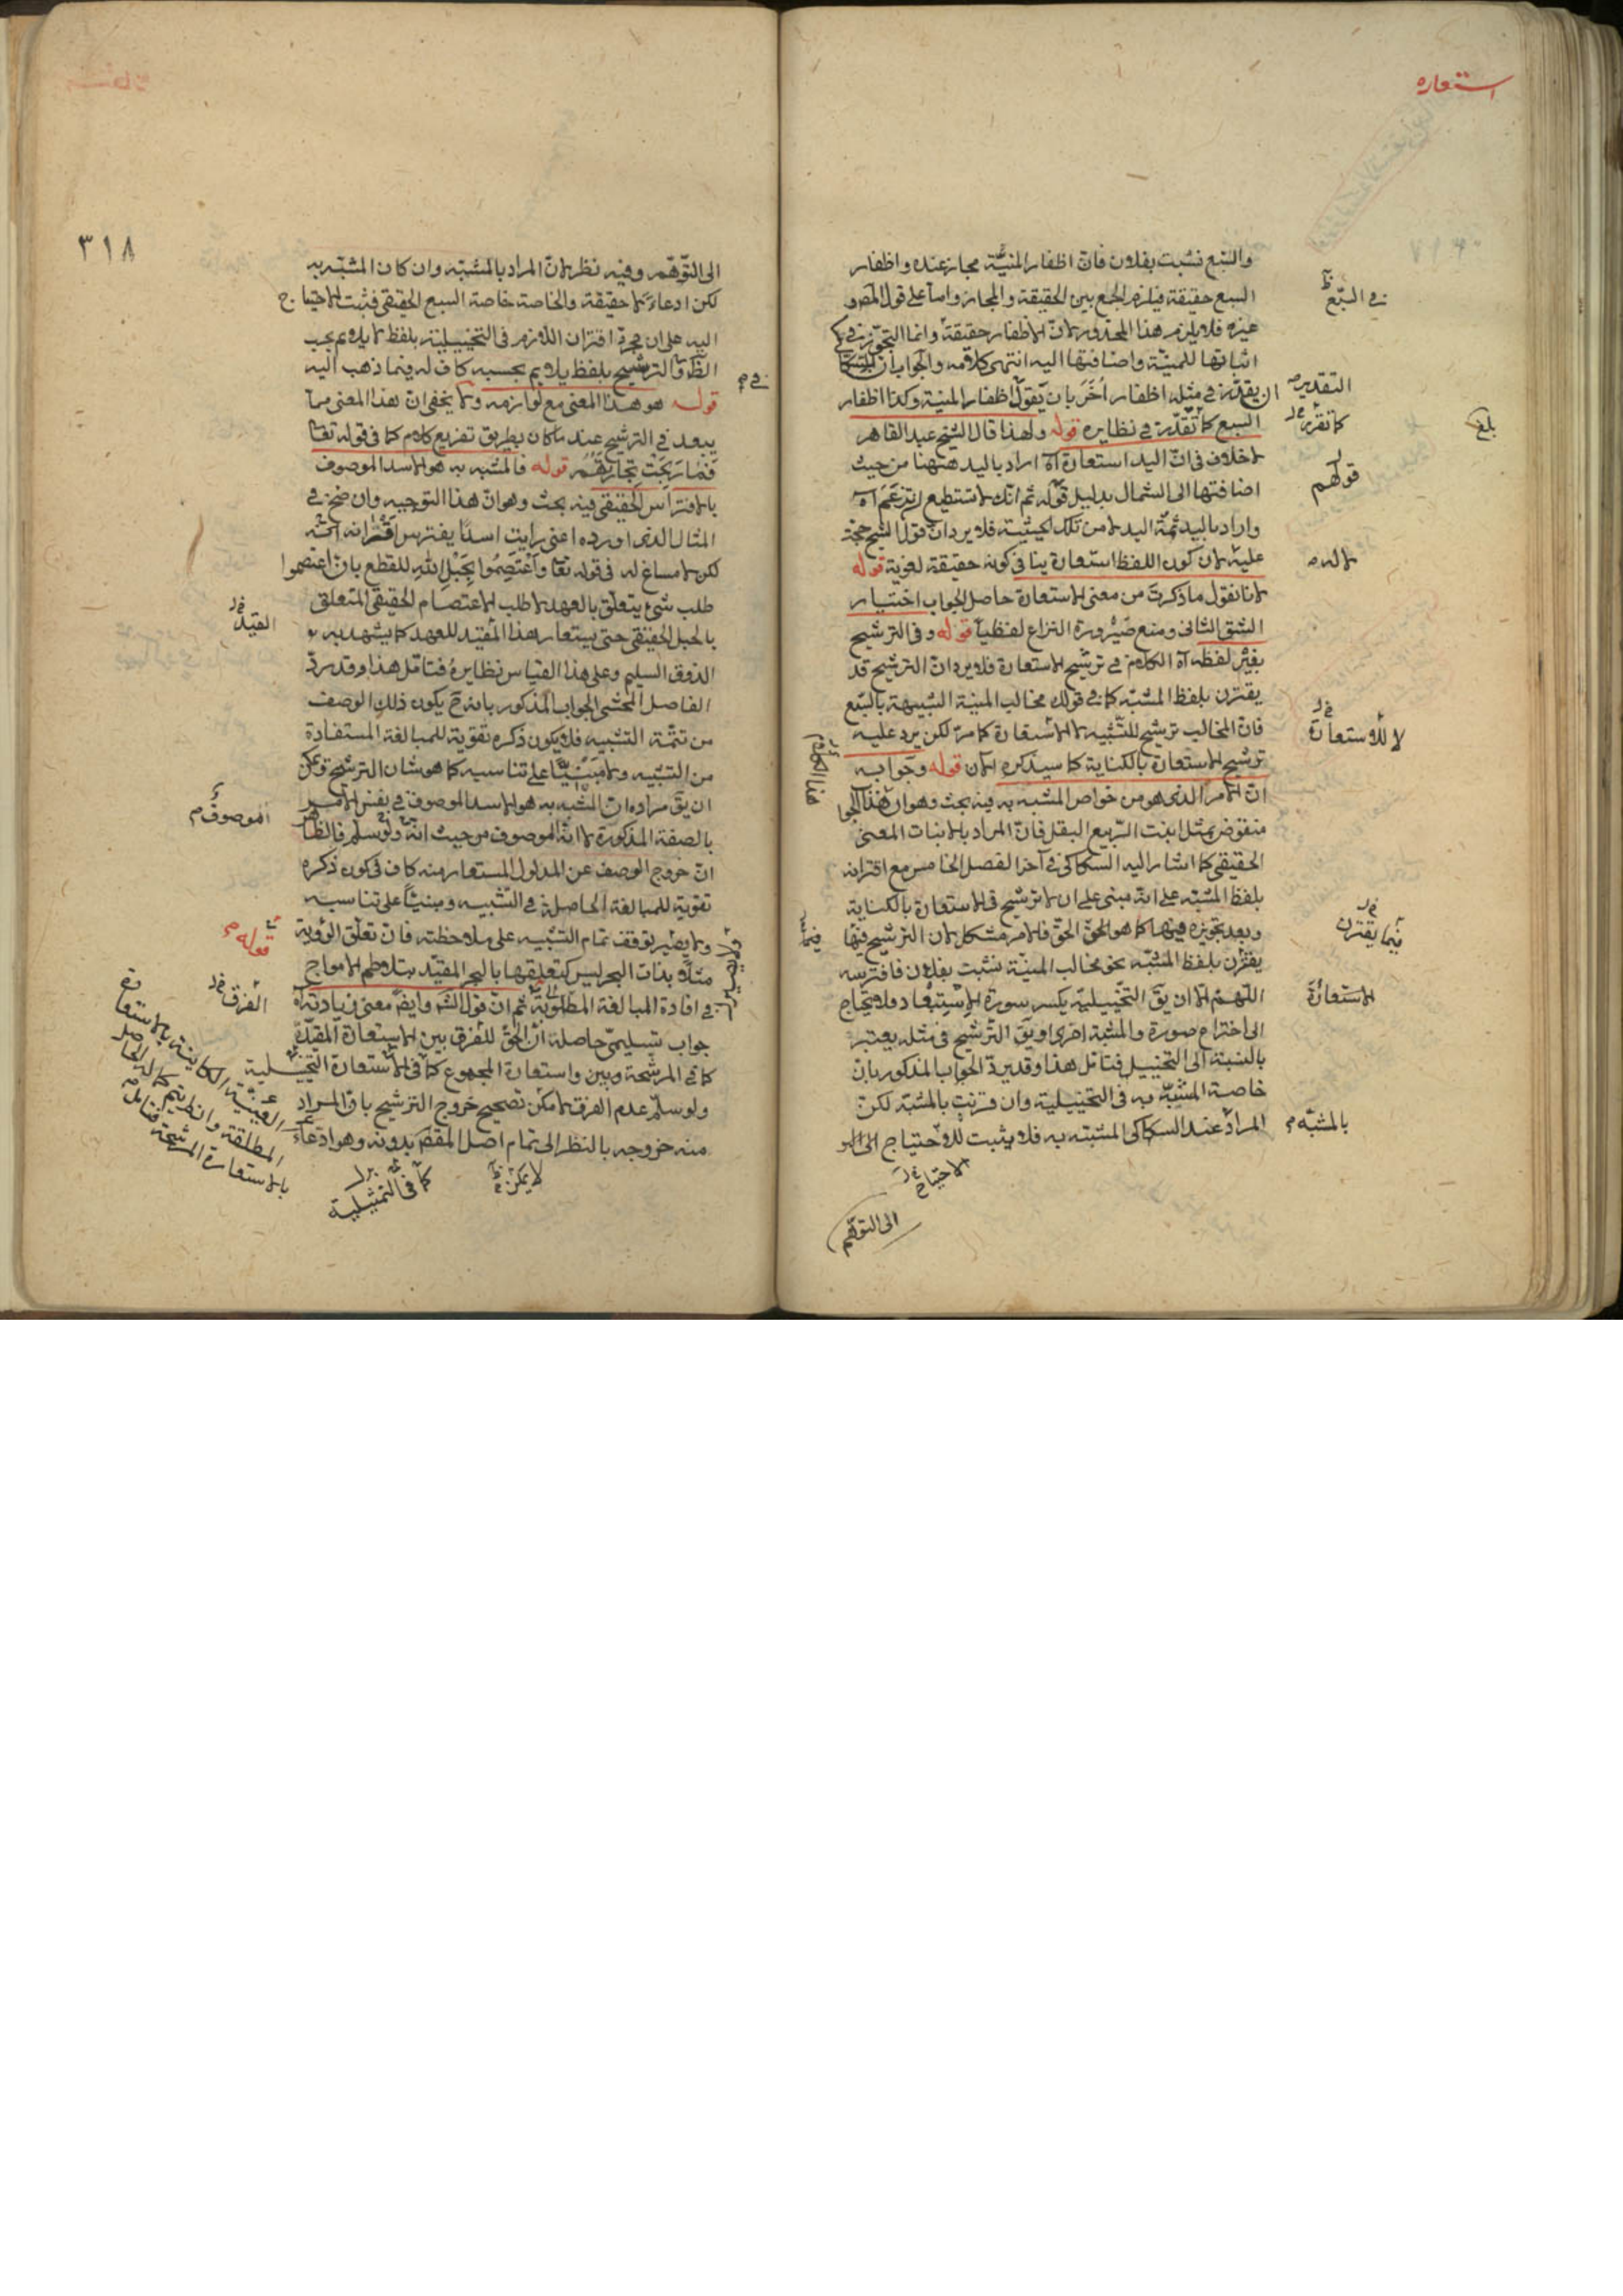 استعاره
والسبع نشبت بفلان فان اظفار المنيّة مجاز عنده واظفار
السبع حقيقة فيلزم الجمع بين الحقيقة والمجاز واما على قول المص و
غيره فلا يلزم هذا المحذور لان الاظفار حقيقة وانما التجوّز في
اثباتها للمنيّة واضافتها اليه انتهى كلامه والجواب ان للسكا
ان يقدّر في مثله اظفار اُخَرُ بان يقول اظفار المنية وكذا اظفار
السبع كما تقدّر في نظايره قوله ولهذا قال الشيخ عبد القاهر
لاخلاف في انّ اليد استعارة آه اراد باليد ههنا من حيث
اضافتها الى الشمال بدليل قوله ثم انك لا تستطيع ان تزعم آه
واراد باليد ثمّة اليد لا من تلك الحيثية فلا يرد ان قول الشيخ حجة
عليه لان كون اللفظ استعارة ينافي كونه حقيقة لغوية قوله
لانا نقول ما ذكرت من معنى الاستعارة حاصل الجواب اختيار
الشق الثاني ومنع صيرورة النزاع لفظيا قوله وفي الترشيح
بغير لفظه آه الكلام في ترشيح الاستعارة فلا يرد انّ الترشيح قد
يقترن بلفظ المشبّه كما في قولك مخالب المنية الشبيهة بالسّبع
فانّ المخالب ترشيح للتّشبيه لا الاستعارة كما مرّ لكن يرد عليه
ترشيح الاستعارة بالكناية كما سيذكره الان قوله وجوابه
انّ الامر الذي هو من خواص المشبه به فيه بحث وهو ان هذا الجوا
منقوض بمثل انبت الرّبيع البقل فانّ المراد بالانبات المعنى
الحقيقي كما اشار اليه السكاكي في آخر الفصل الخامس مع اقترانه
بلفظ المشبّه على انه مبني على ان لا ترشيح في الاستعارة بالكناية
وبعد تجويزه فيها كما هو الحق الحقّ فالامر مشكل لان الترشيح فيها
يقترن بلفظ المشبّه نحو مخالب المنيّة نشبت بفلان فافترسه
اللّهمّ الا ان يقَ التّخييليّة يكسر سورة الاستبعاد فلا يحتاج
الى اختراع صورة والمشبه اخرى او يقَ الترشيح في مثله يعتبر
بالنسبة الى التخييل فتأمل هذا وقد يردّ الجواب المذكور بانّ
خاصة المشبّه به في التخييلية وان قرنت بالمشبّه لكنّ
المراد عند السكاكي المشبّه به فلا يثبت للاحتياج الى الو
في السّبع
التقدير
كما تقرّر
قولهم
بلغ
لا للاستعارة
هذا الكلام
فيما يقترن
الاستعارة
بالمشبّه
الاحتياج
الى التوهّم
٣١٨
الى التّوهّم وفيه نظر لانّ المراد بالمشبّه وان كان المشبّه به
لكن ادعاءً لا حقيقة والخاصة خاصة السبع الحقيقي فثبت الاحتياج
اليه على ان مجرّد اقتران اللازم في التخييلية بلفظ لا يلايم بحسب
الظّ والترشيح بلفظ يلايم بحسبه كاف له فيما ذهب اليه
قوله هو هذا المعنى مع لوازمه ولا يخفى ان هذا المعنى مما
يبعد في الترشيح عند ما كان بطريق تفريع كلام كما في قوله تعا
فَمَا رَبِحَتْ تِجَارَتُهُمْ قوله فالمشبه به هو الاسد الموصوف
بالافتراس الحقيقي فيه بحث وهو انّ هذا التوجيه وان صح في
المثال الذي اورده اعني رايت اسدًا يفترس اقرانه
لكن لا مساغ له في قوله تعا وَاعْتَصِمُوا بِحَبْلِ اللهِ للقطع بان اعتصموا
طلب شئ يتعلّق بالعهد لا طلب الاعتصام الحقيقي المتعلق
بالحبل الحقيقي حتى يستعار هذا المقيّد للعهد كما يشهد به
الذوق السليم وعلى هذا القياس نظايره فتأمل هذا وقد ردّ
الفاضل المحشي الجواب المذكور بانه ح يكون ذلك الوصف
من تتمّة التشبيه فلا يكون ذكره تقوية للمبالغة المستفادة
من التشبيه ولا مبنيًّا على تناسيه كما هو شان الترشيح ويمكن
ان يقَ مراده ان المشبه به هو الاسد الموصوف في نفس الامر
بالصفة المذكورة لا انّه الموصوف من حيث انه ولو سلم فالظاهر
انّ خروج الوصف عن المدلول المستعار منه كاف في كون ذكره
تقوية للمبالغة الحاصلة في التشبيه ومبنيّا على تناسيه
ولا يضير توقف تمام التشبيه على ملاحظته فان تعلّق الرؤية
مثلًا بذات البحر ليس كتعلقها بالبحر المقيّد بتلاطم الامواج
في افادة المبالغة المطلوبة ثم انّ قول الش وايضً معنى زيادته آه
جواب تسليميّ حاصله انّ الحقّ للفرق بين الاستعارة المقيّدة
كما في المرشّحة وبين استعارة المجموع كما في الاستعارة التخييلية
ولو سلّم عدم الفرق لامكن تصحيح خروج الترشيح بانّ المراد
منه خروجه بالنظر الى تمام اصل المقصَ بدونه وهو ادعاء
المقيّد
الموصوف
قوله
الفرق
لا يمكن
كما في التمثيلية
المطلقة
بالاستعارة المرشّحة